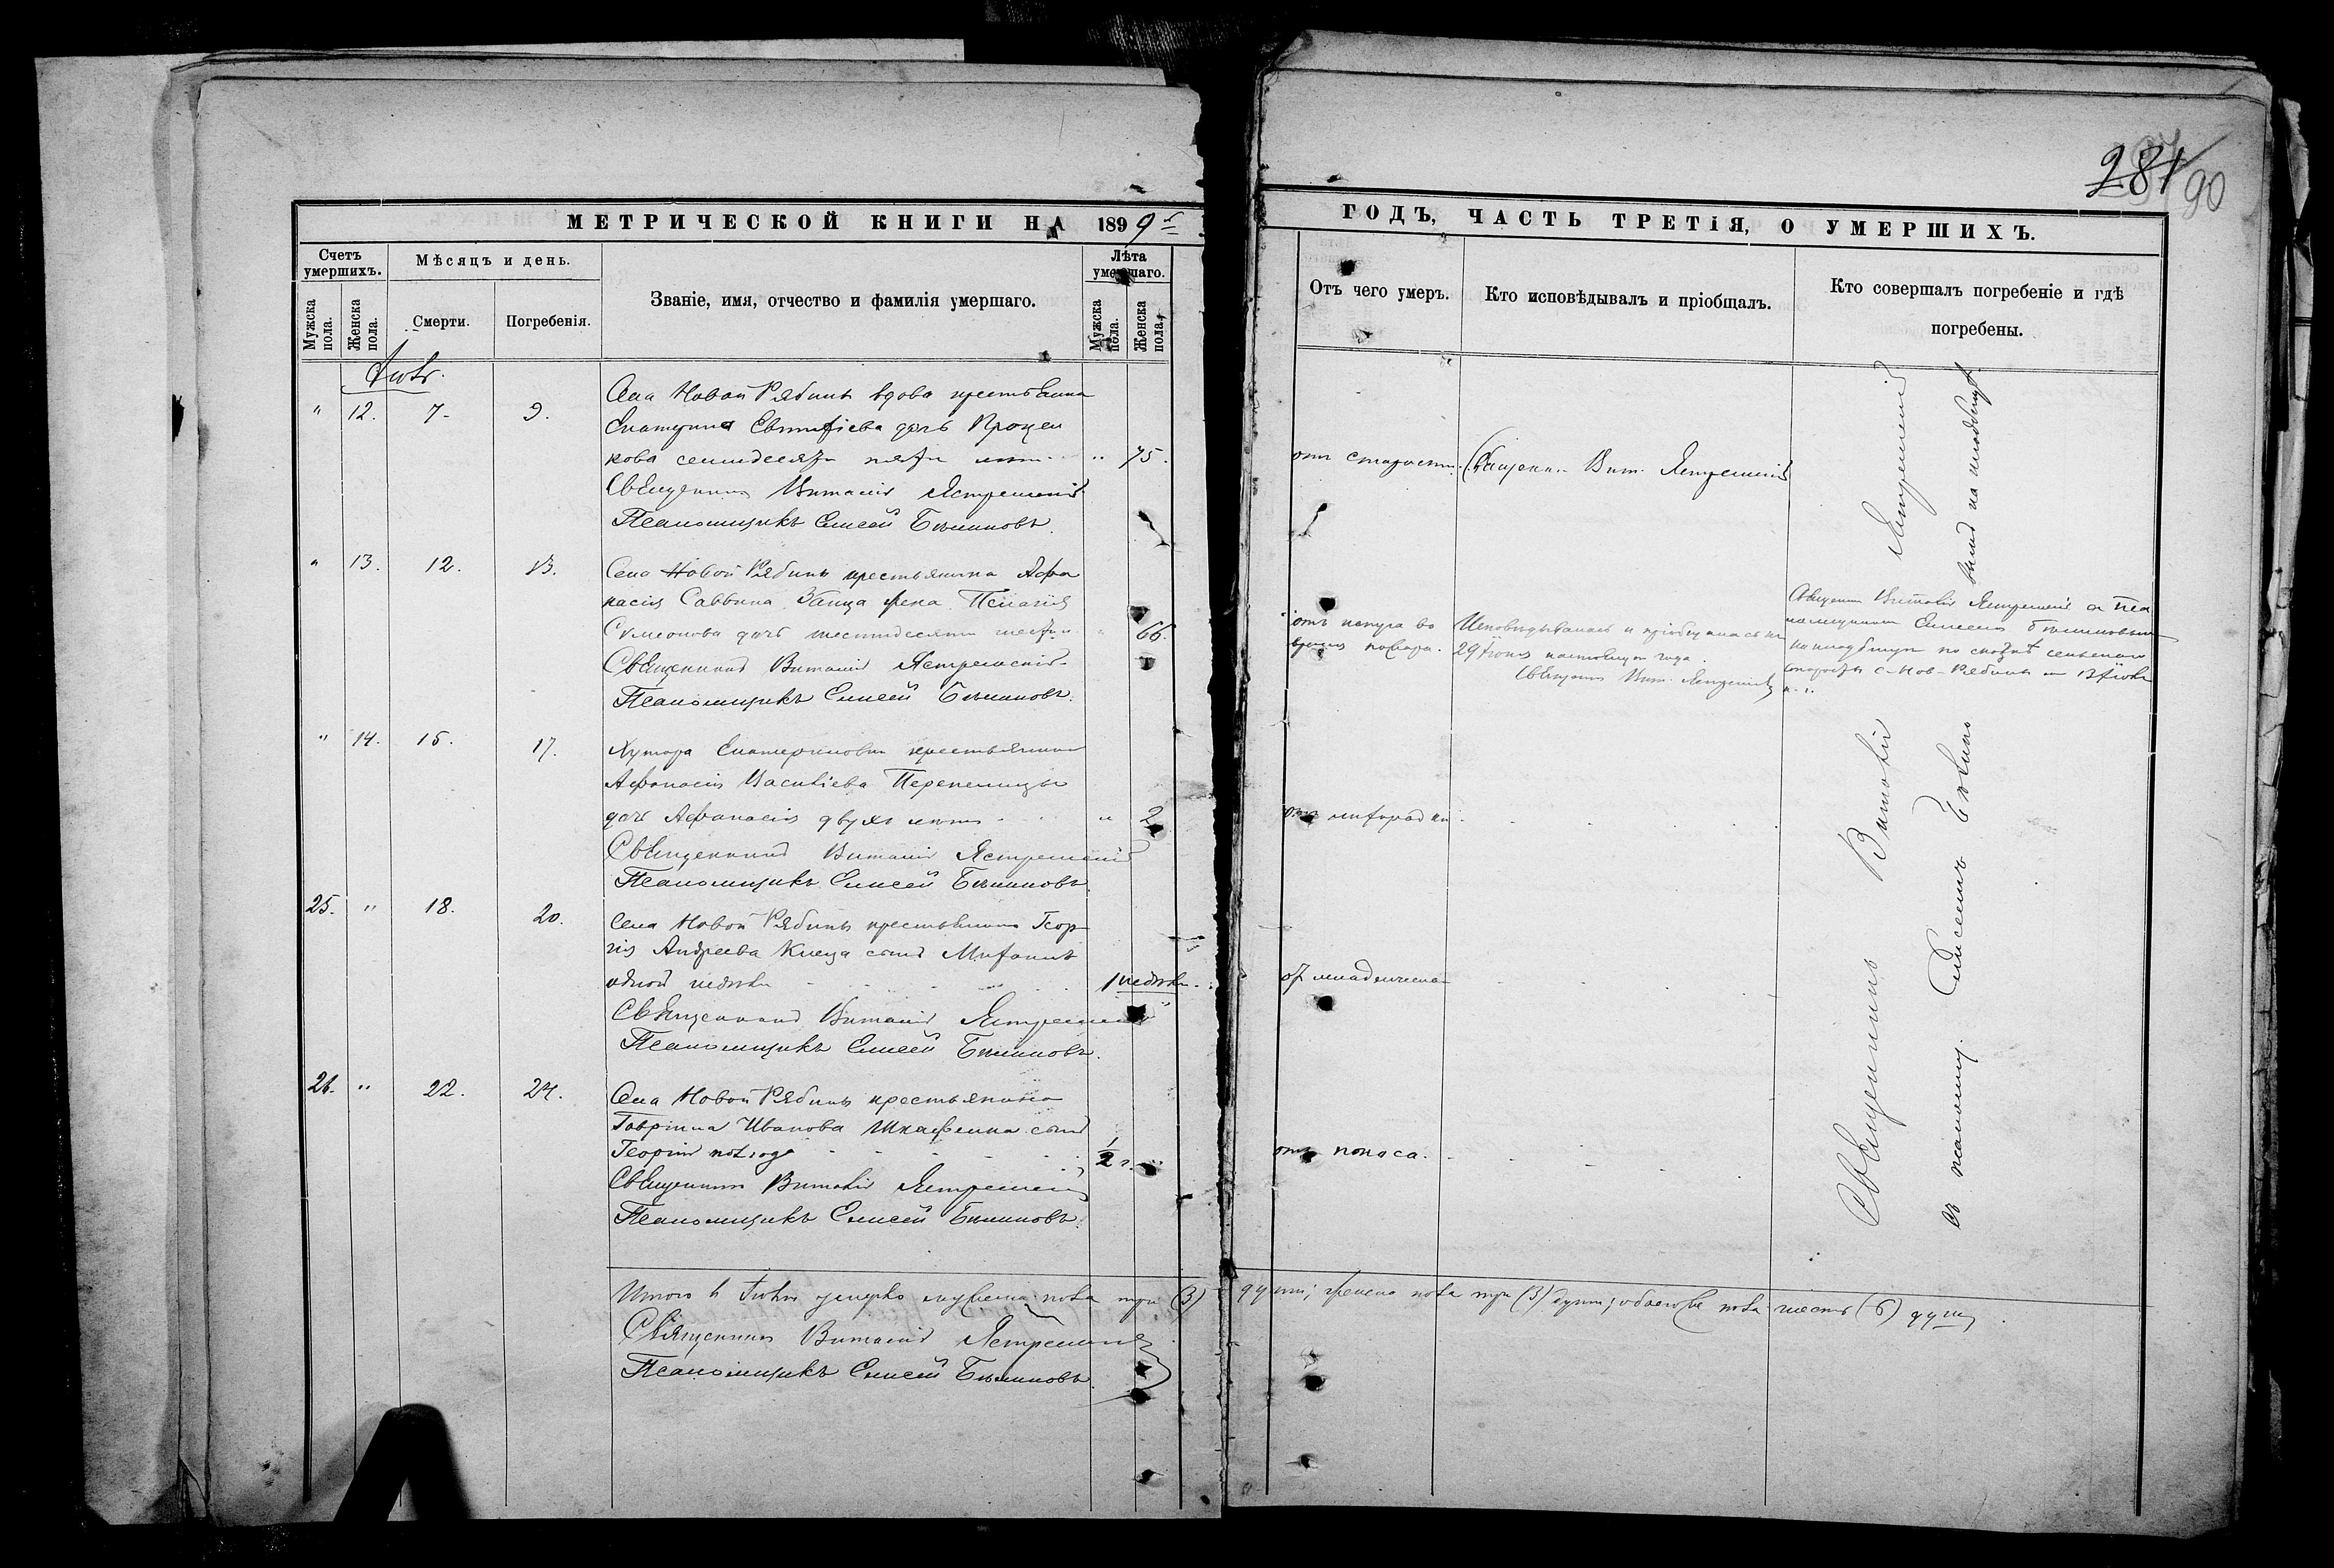 281
90
МЕТРИЧЕСКОЙ КНИГИ НА 1899 г
ГОДЪ, ЧАСТЬ ТРЕТІЯ, О УМЕРШИХЪ.
Счетъ умершихъ.
Мужска пола.
Женска пола.
Мѣсяцъ и день.
Смерти.
Погребенія.
Званіе, имя, отчество и фамилія умершаго.
Лѣта умершаго.
Мужска пола.
Женска пола.
Отъ чего умеръ.
Кто исповѣдывалъ и пріобщалъ.
Кто совершалъ погребеніе и гдѣ погребены.
Іюль.
" 12. 7. 9.
Села Новой Рябины вдова крестьянка
Екатерина Евтифіева дочь Процен
кова семидесяти пяти лѣтъ " 75.
Священникъ Виталій Ястремскій
Псаломщикъ Елисей Бѣлиновъ.
отъ старости.
Священ. Вит. Ястремскій
" 13. 12. 13.
Села Новой Рябины крестьянина Афа
насія Саввина Заица жена Пелагія
Симеонова дочь шестидесяти шести " 66.
Священникъ Виталій Ястремскій
Псаломщикъ Елисей Бѣлиновъ.
отъ испуга во
время пожара.
Исповѣдывалась и пріобщалась
29 Іюня настоящаго года.
Священникъ Вит. Ястремскій
Священникъ Виталій Ястремскій съ Пса
ломщикомъ Елисеемъ Бѣлиновымъ
на кладбищѣ по сельскаго
старосты с. Нов. Рябины 13 Іюля
" 14. 15. 17.
Хутора Екатериновки крестьянина
Афанасія Василіева Перепелицы
дочь Афанасія двухъ лѣтъ " 2
Священникъ Виталій Ястремскій
Псаломщикъ Елисей Бѣлиновъ.
отъ лихорадки.
25. " 18. 20.
Села Новой Рябины крестьянина Геор
гія Андреева сынъ
одной недѣли 1 недѣли.
Священникъ Виталій Ястремскій
Псаломщикъ Елисей Бѣлиновъ.
от младенческой
26. " 22. 24.
Села Новой Рябины крестьянина
Гавріила Иванова сынъ
Георгій полгода 1/2 г.
Священникъ Виталій Ястремскій
Псаломщикъ Елисей Бѣлиновъ.
отъ поноса.
Священникъ Виталій Ястремскій
съ псаломщ. Елисеемъ на кладбищѣ.
Итого въ Іюлѣ умерло мужеска пола три (3) души; женска пола три (3) души; обоего пола шесть (6) душъ.
Священникъ Виталій Ястремскій
Псаломщикъ Елисей Бѣлиновъ.